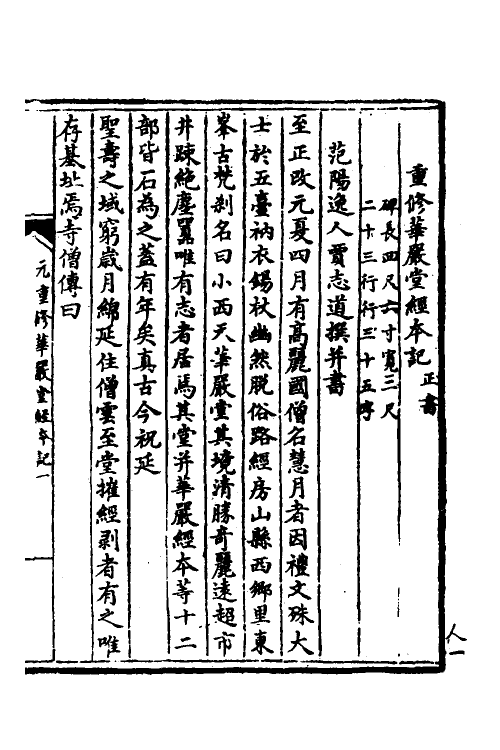 重修華嚴堂經本記 正書
碑長四尺六寸寬三尺
二十三行行三十五字
范陽逸人賈志道撰并書
至正改元夏四月有高麗國僧名慧月者因禮文殊大
士於五臺衲衣錫杖幽然脫俗路經房山縣西鄉里東
峯古梵剎名曰小西天華嚴堂其境清勝奇麗遠超市
井踈絕塵囂唯有志者居焉其堂并華嚴經本等十二
部皆石為之蓋有年矣真古今祝延
聖壽之域窮歲月綿延住僧雲至堂摧經剥者有之唯
存基址焉寺僧傳曰
元重修華嚴堂經本記一
人一